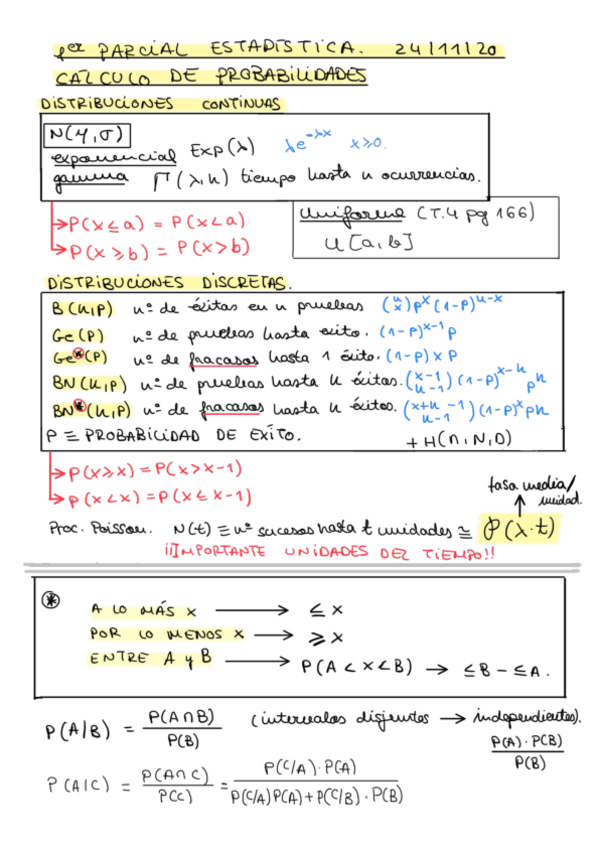 1er PARCIAL ESTADÍSTICA. 24/11/20
CÁLCULO DE PROBABILIDADES
DISTRIBUCIONES CONTINUAS
N(μ,σ)
exponencial Exp(λ) λe^-λx x⩾0.
gamma Γ(λ,n) tiempo hasta n ocurrencias.
→P(x≤a) = P(x<a)
→P(x⩾b) = P(x>b)
Uniforme (T.4 pg 166)
U[a,b]
DISTRIBUCIONES DISCRETAS.
B(n,p) nº de éxitos en n pruebas (n x) p^x (1-p)^n-x
Ge(p) nº de pruebas hasta éxito. (1-p)^x-1 p
Ge*(p) nº de fracasos hasta 1 éxito. (1-p)^x p
BN(k,p) nº de pruebas hasta k éxitos. (x-1 k-1) (1-p)^x-k p^k
BN*(k,p) nº de fracasos hasta k éxitos. (x+k-1 k-1) (1-p)^x p^k
P ≡ PROBABILIDAD DE EXITO. + H(n,N,D)
→P(x⩾x) = P(x>x-1)
→P(x<x) = P(x≤x-1)
tasa media/
unidad.
Proc. Poisson. N(t) ≡ nº sucesos hasta t unidades ≅ P(λ·t)
¡¡IMPORTANTE UNIDADES DEL TIEMPO!!
*
A LO MÁS x → ≤ x
POR LO MENOS x → ⩾ x
ENTRE A y B → P(A<x<B) → ≤B - ≤A.
P(A/B) = P(A∩B) / P(B) (intervalos disjuntos → independientes).
P(A)·P(B) / P(B)
P(A|C) = P(A∩C) / P(C) = P(C/A)·P(A) / P(C/A)P(A)+P(C/B)·P(B)